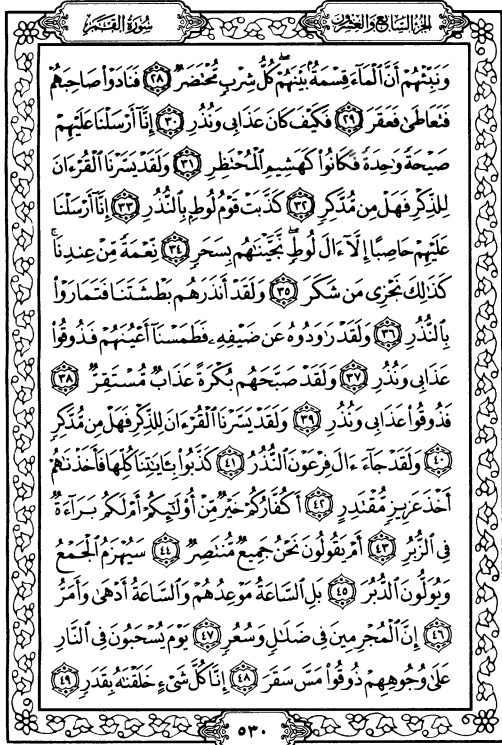 سُورَةُ القَمَرِ
الجزء السابع والعشرون
وَنَبِّئْهُمْ أَنَّ ٱلْمَآءَ قِسْمَةٌۢ بَيْنَهُمْ ۖ كُلُّ شِرْبٍ مُّحْتَضَرٌ ٢٨ فَنَادَوْا۟ صَاحِبَهُمْ
فَتَعَاطَىٰ فَعَقَرَ ٢٩ فَكَيْفَ كَانَ عَذَابِى وَنُذُرِ ٣٠ إِنَّآ أَرْسَلْنَا عَلَيْهِمْ
صَيْحَةً وَٰحِدَةً فَكَانُوا۟ كَهَشِيمِ ٱلْمُحْتَظِرِ ٣١ وَلَقَدْ يَسَّرْنَا ٱلْقُرْءَانَ
لِلذِّكْرِ فَهَلْ مِن مُّدَّكِرٍ ٣٢ كَذَّبَتْ قَوْمُ لُوطٍۭ بِٱلنُّذُرِ ٣٣ إِنَّآ أَرْسَلْنَا
عَلَيْهِمْ حَاصِبًا إِلَّآ ءَالَ لُوطٍ ۖ نَّجَّيْنَٰهُم بِسَحَرٍ ٣٤ نِّعْمَةً مِّنْ عِندِنَا ۚ
كَذَٰلِكَ نَجْزِى مَن شَكَرَ ٣٥ وَلَقَدْ أَنذَرَهُم بَطْشَتَنَا فَتَمَارَوْا۟
بِٱلنُّذُرِ ٣٦ وَلَقَدْ رَٰوَدُوهُ عَن ضَيْفِهِۦ فَطَمَسْنَآ أَعْيُنَهُمْ فَذُوقُوا۟
عَذَابِى وَنُذُرِ ٣٧ وَلَقَدْ صَبَّحَهُم بُكْرَةً عَذَابٌ مُّسْتَقِرٌّ ٣٨
فَذُوقُوا۟ عَذَابِى وَنُذُرِ ٣٩ وَلَقَدْ يَسَّرْنَا ٱلْقُرْءَانَ لِلذِّكْرِ فَهَلْ مِن مُّدَّكِرٍ
٤٠ وَلَقَدْ جَآءَ ءَالَ فِرْعَوْنَ ٱلنُّذُرُ ٤١ كَذَّبُوا۟ بِـَٔايَٰتِنَا كُلِّهَا فَأَخَذْنَٰهُمْ
أَخْذَ عَزِيزٍ مُّقْتَدِرٍ ٤٢ أَكُفَّارُكُمْ خَيْرٌ مِّنْ أُو۟لَٰٓئِكُمْ أَمْ لَكُم بَرَآءَةٌ
فِى ٱلزُّبُرِ ٤٣ أَمْ يَقُولُونَ نَحْنُ جَمِيعٌ مُّنتَصِرٌ ٤٤ سَيُهْزَمُ ٱلْجَمْعُ
وَيُوَلُّونَ ٱلدُّبُرَ ٤٥ بَلِ ٱلسَّاعَةُ مَوْعِدُهُمْ وَٱلسَّاعَةُ أَدْهَىٰ وَأَمَرُّ
٤٦ إِنَّ ٱلْمُجْرِمِينَ فِى ضَلَٰلٍ وَسُعُرٍ ٤٧ يَوْمَ يُسْحَبُونَ فِى ٱلنَّارِ
عَلَىٰ وُجُوهِهِمْ ذُوقُوا۟ مَسَّ سَقَرَ ٤٨ إِنَّا كُلَّ شَىْءٍ خَلَقْنَٰهُ بِقَدَرٍ ٤٩
٥٣٠